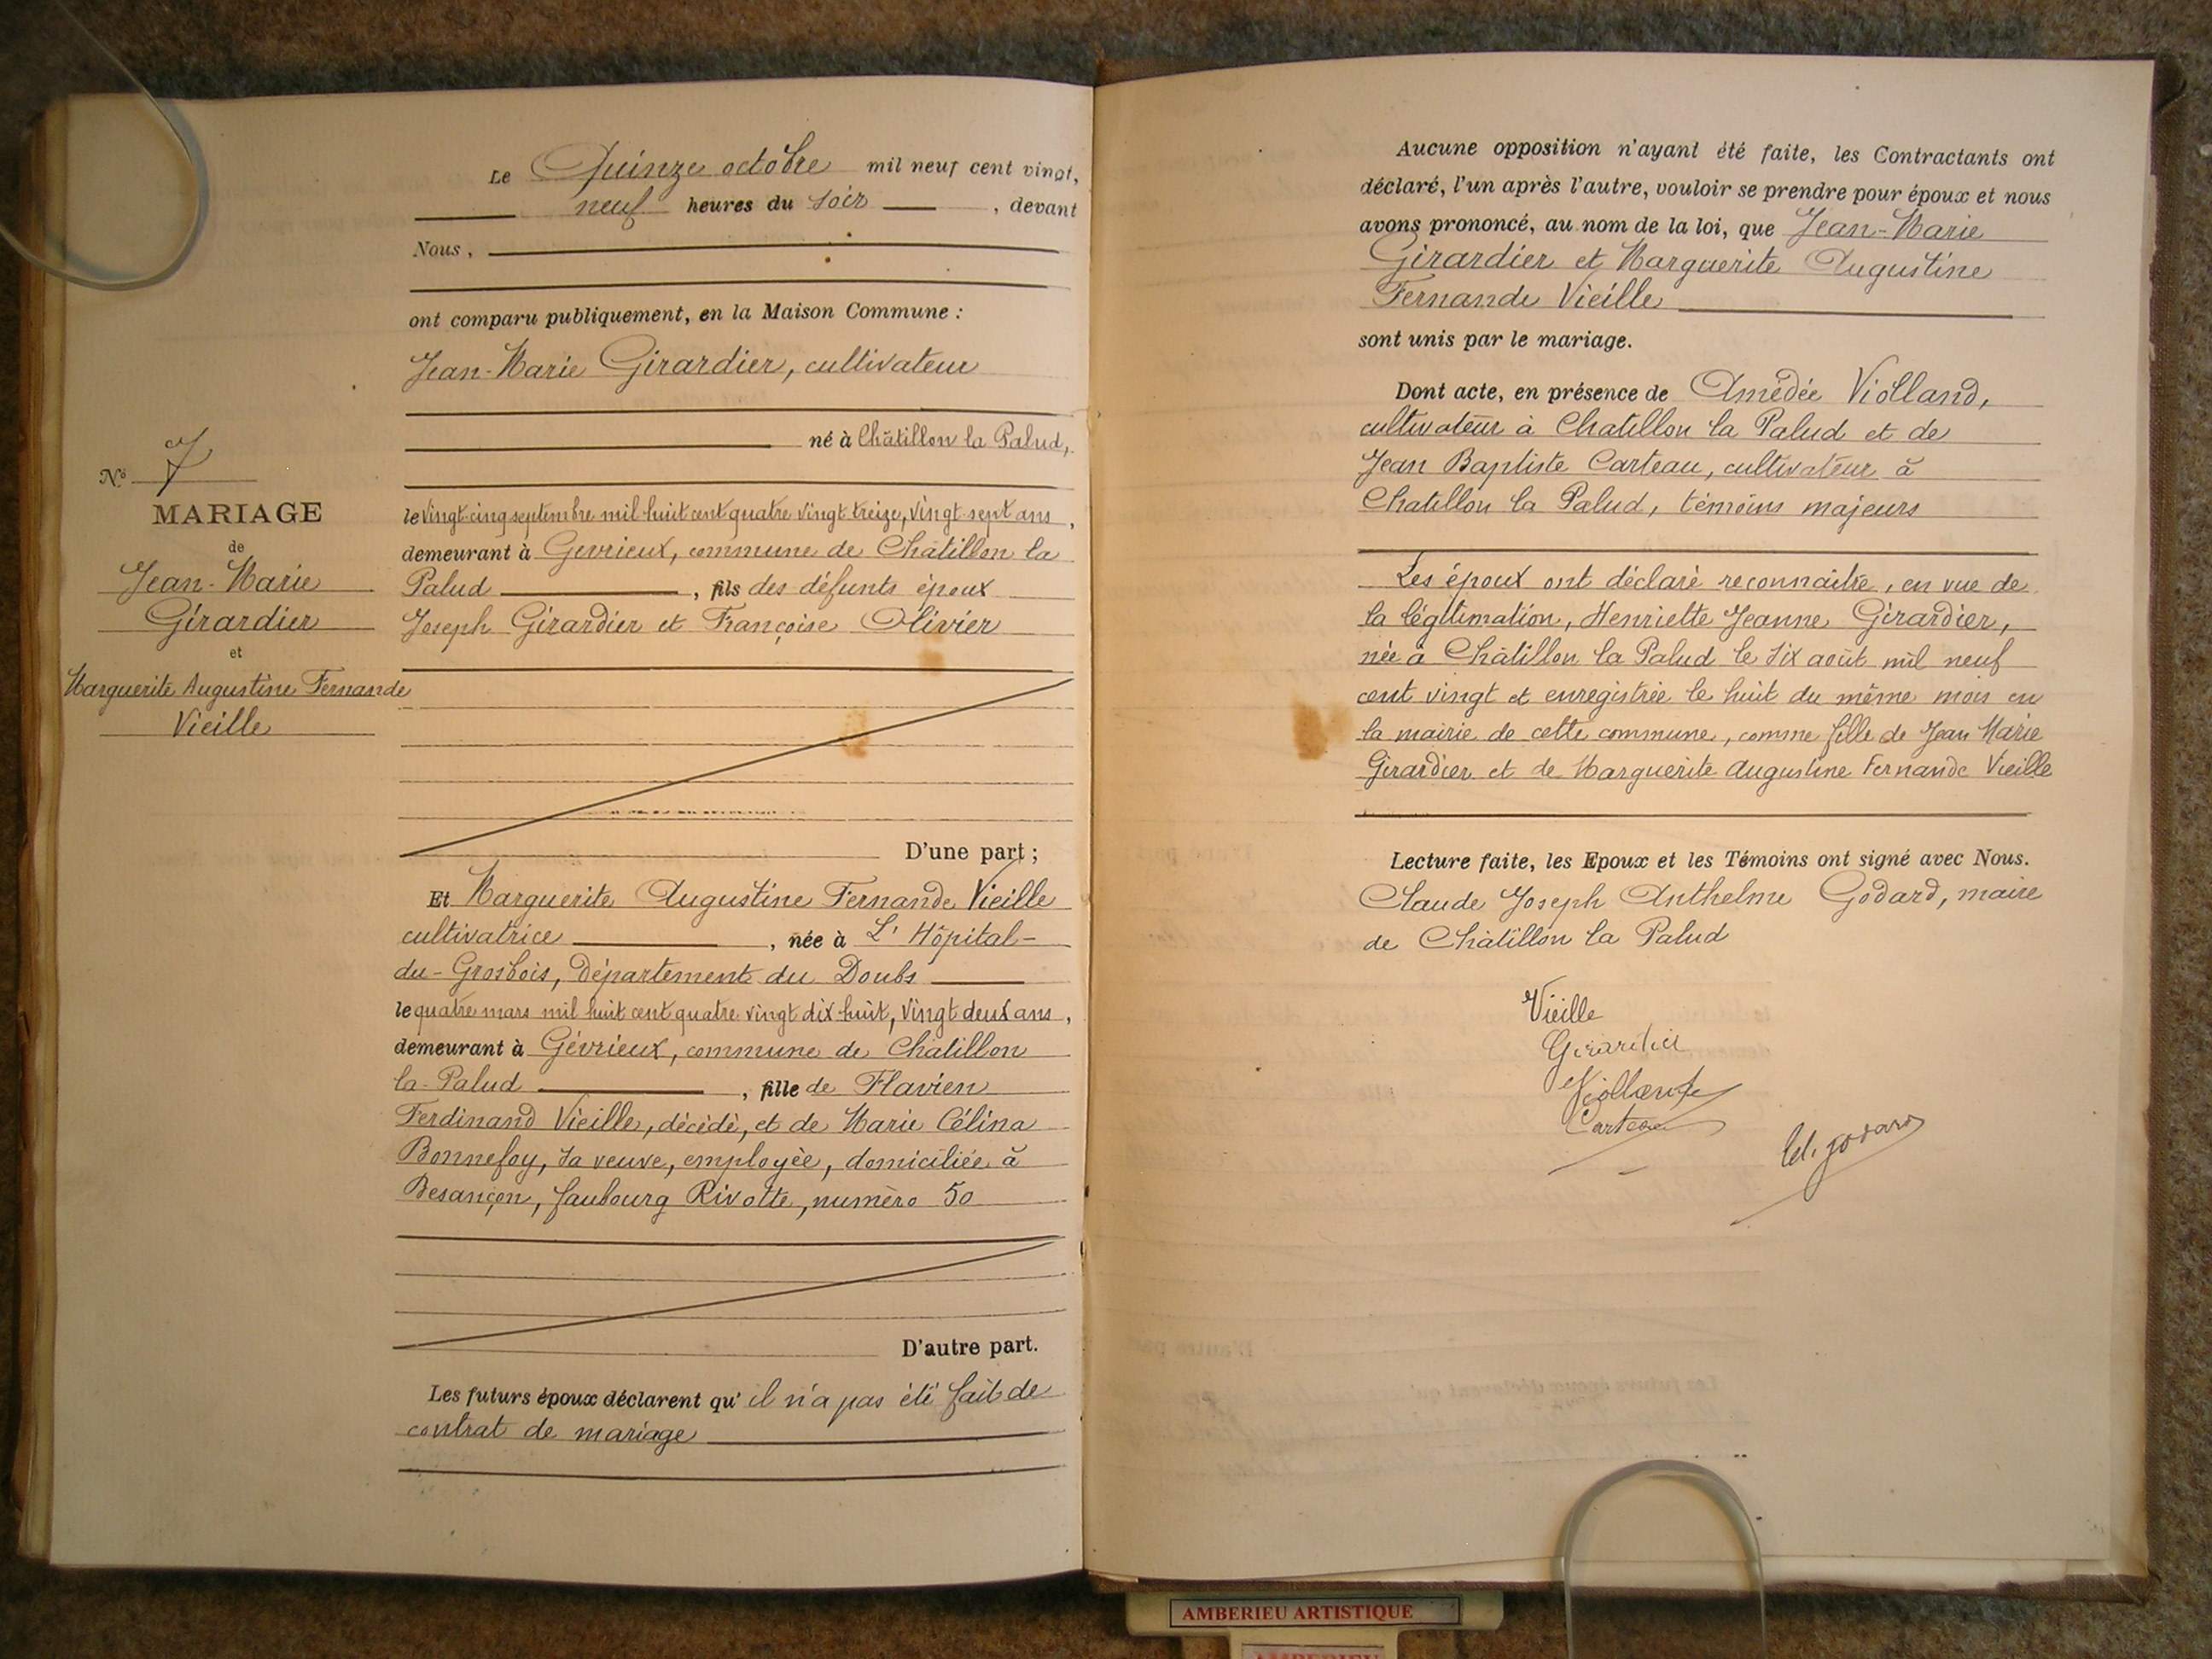 Le Quinze octobre mil neuf cent vingt,
neuf heures du soir, devant
Nous,
ont comparu publiquement, en la Maison Commune :
Jean-Marie Girardier, cultivateur
né à Châtillon la Palud,
le vingt-cinq septembre mil huit cent quatre vingt treize, vingt sept ans,
demeurant à Gevrieux, commune de Châtillon la
Palud, fils des défunts époux
Joseph Girardier et Françoise Olivier
D'une part ;
N° 7
MARIAGE
de
Jean-Marie
Girardier
et
Marguerite Augustine Fernande
Vieille
Et Marguerite Augustine Fernande Vieille
cultivatrice, née à L'Hôpital-
du-Grosbois, Département du Doubs
le quatre mars mil huit cent quatre vingt dix-huit, vingt deux ans,
demeurant à Gévrieux, commune de Châtillon
la-Palud, fille de Flavien
Ferdinand Vieille, décédé, et de Marie Célina
Bonnefoy, sa veuve, employée, domiciliée à
Besançon, faubourg Rivotte, numéro 50
D'autre part.
Les futurs époux déclarent qu'il n'a pas été fait de
contrat de mariage
Aucune opposition n'ayant été faite, les Contractants ont
déclaré, l'un après l'autre, vouloir se prendre pour époux et nous
avons prononcé, au nom de la loi, que Jean-Marie
Girardier et Marguerite Augustine
Fernande Vieille
sont unis par le mariage.
Dont acte, en présence de Amédée Violland,
cultivateur à Chatillon la Palud et de
Jean Baptiste Carteau, cultivateur à
Chatillon la Palud, témoins majeurs
Les époux ont déclaré reconnaître, en vue de
la légitimation, Henriette Jeanne Girardier,
née à Châtillon la Palud le six août mil neuf
cent vingt et enregistrée le huit du même mois en
la mairie de cette commune, comme fille de Jean Marie
Girardier et de Marguerite Augustine Fernande Vieille
Lecture faite, les Epoux et les Témoins ont signé avec Nous.
Claude Joseph Anthelme Godard, maire
de Châtillon la Palud
Vieille
Girardier
Violland
Carteau
Cl. Godard
AMBERIEU ARTISTIQUE
AMBERIEU